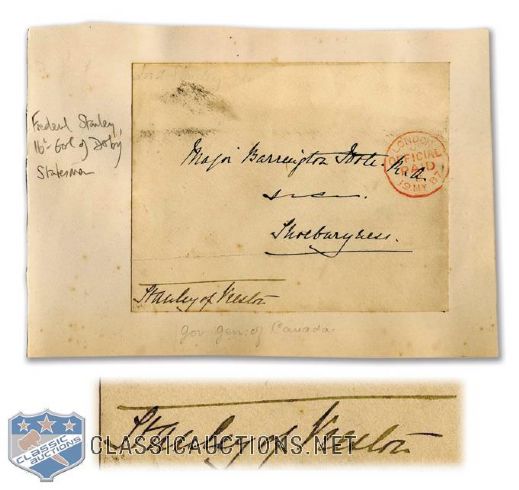 Frederick Stanley,
16th Earl of Derby
Statesman
Major Barrington Foote. R.A.
Shoeburyness.
LONDON
OFFICIAL
PAID
19 MY 87
Stanley of Preston
Gov. Gen. of Canada.
Stanley of Preston
CLASSIC
AUCTIONS
CLASSICAUCTIONS.NET